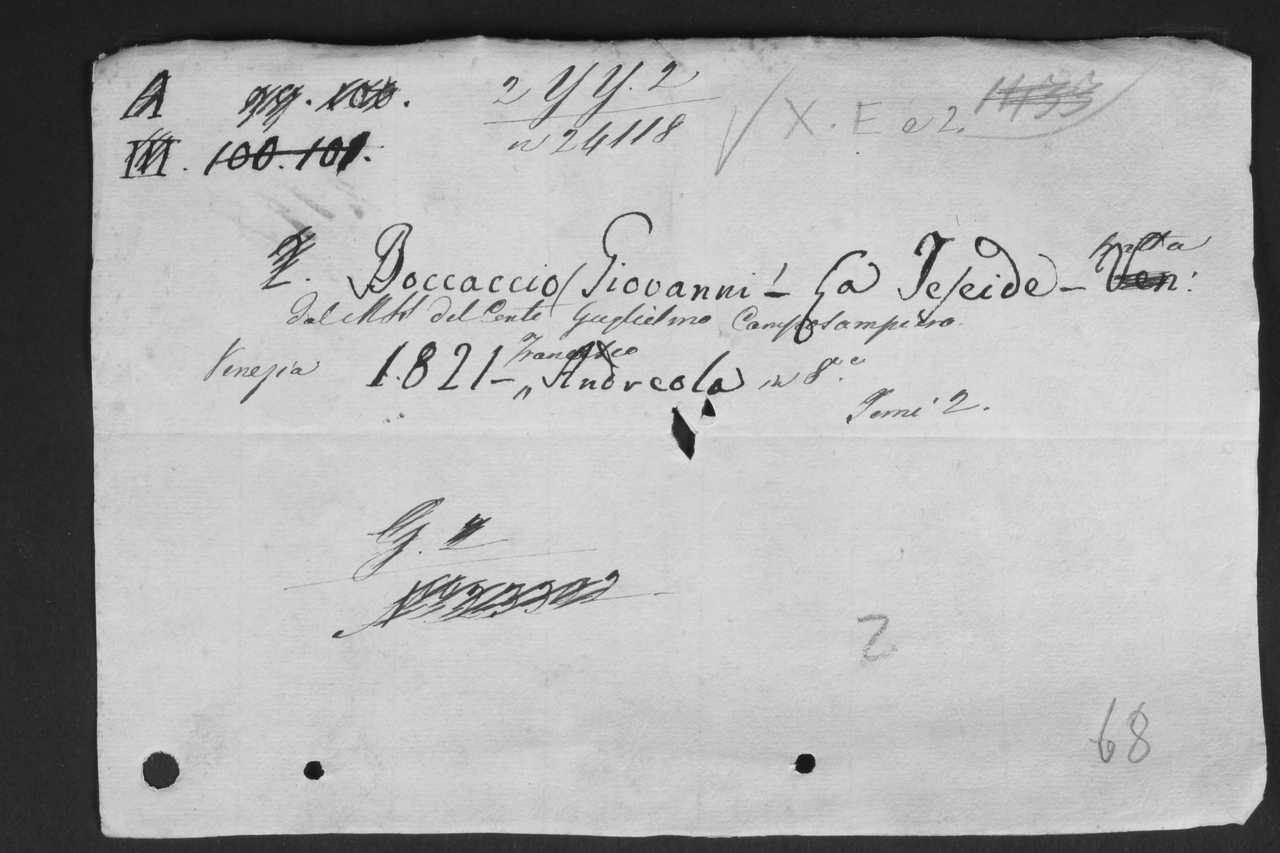 A 99. 100. 2 YY. 2 X. E a 2.
III. 100. 101. n 24118
2. Boccaccio Giovanni - La Teseide - tratta Ven:
dal MSS del Conte Guglielmo Camposampiero
Venezia 1821 - Francesco Andreola in 8.º
Tomi 2.
G. 2
2
68